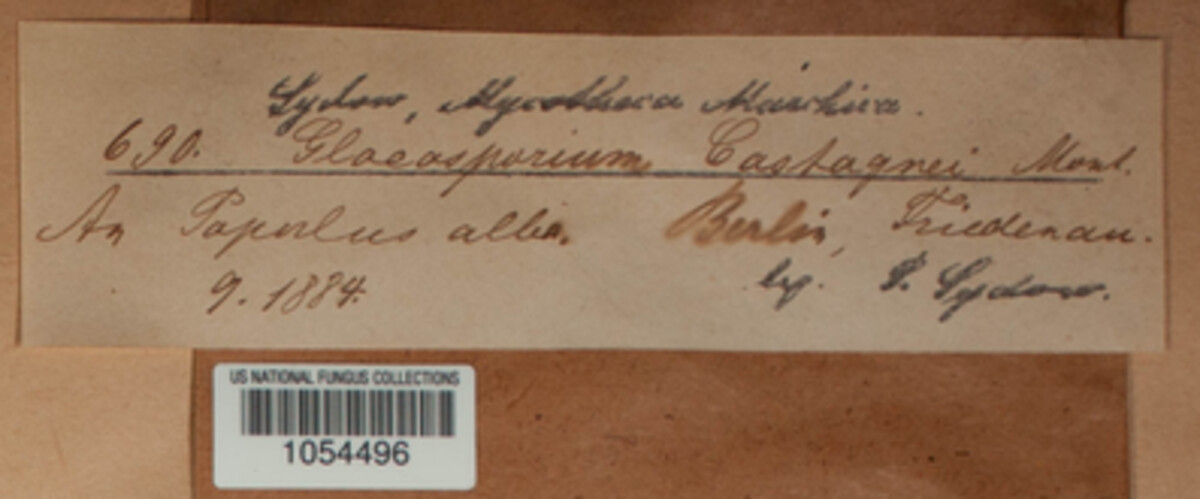 Sydow, Mycotheca Marchica.
690. Gloeosporium Castagnei Mont.
An Populus alba. Berlin, Friedenau.
9. 1884. leg. P. Sydow.
US NATIONAL FUNGUS COLLECTIONS
1054496